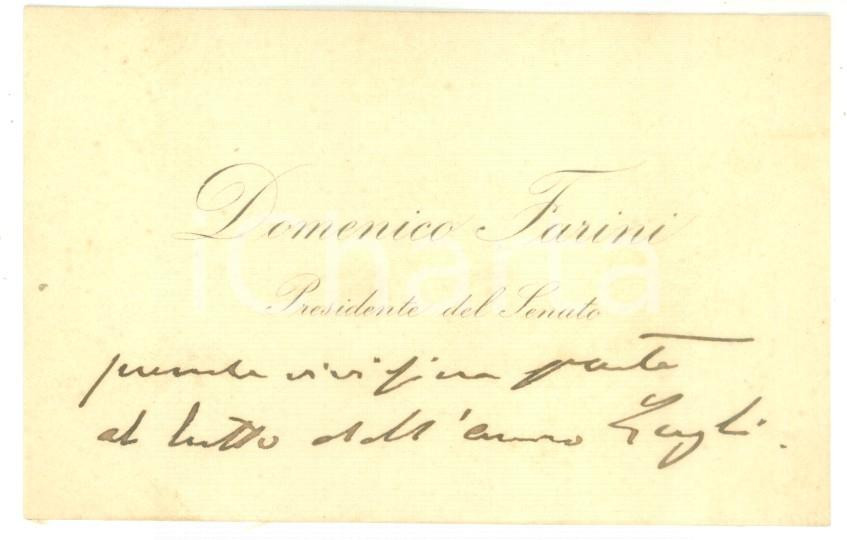 Domenico Farini
iCharta
Presidente del Senato
prende vivissima parte
al lutto dell'amico